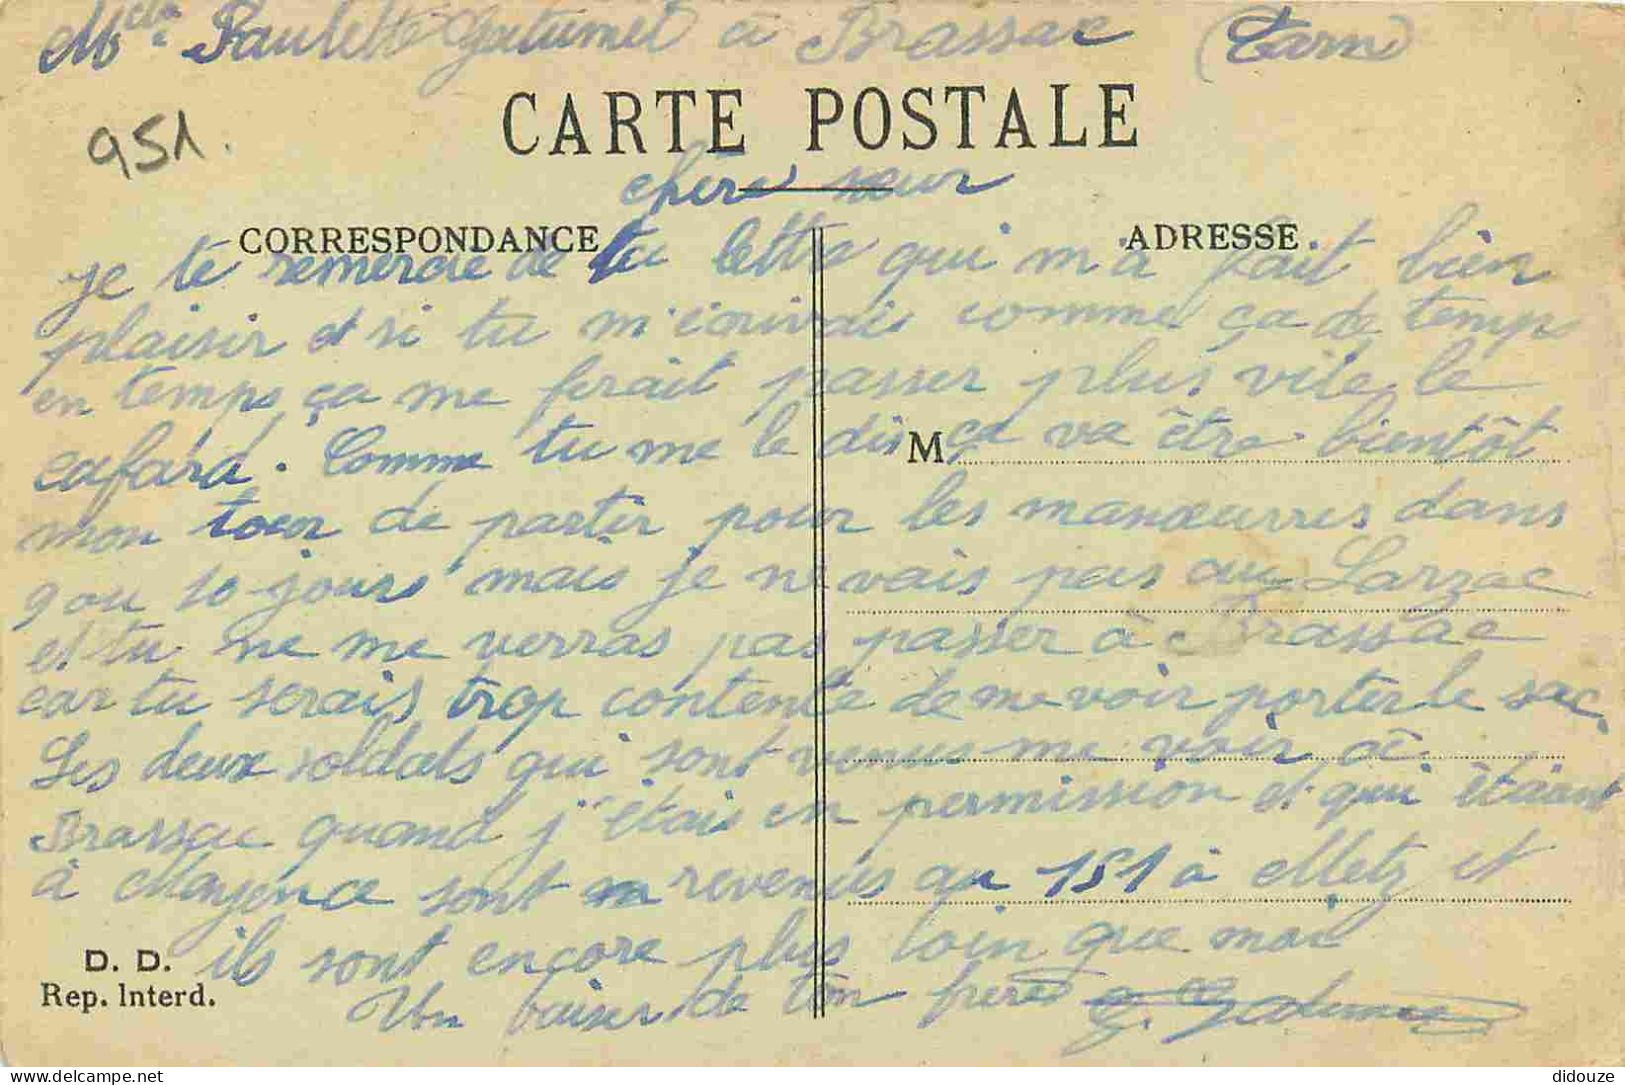 Melle Paulette Galumet à Brassac (Tarn)
951.
CARTE POSTALE
chère sœur
CORRESPONDANCE
ADRESSE
je te remercie de tu lettre qui m'a fait bien
plaisir et si tu m'écrivais comme ça de temps
en temps ça me ferait passer plus vite le
cafard. Comme tu me le dis ça va être bientôt
M
mon tour de partir pour les manœuvres dans
9 ou 10 jours mais je ne vais pas au Larzac
et tu ne me verras pas passer à Brassac
car tu serais trop contente de me voir porter le sac.
Les deux soldats qui sont venus me voir à
Brassac quand j'étais en permission et qui étaient
à Mayence sont revenus au 151 à Metz et
ils sont encore plus loin que moi
D. D.
Rep. Interd.
Un baiser de ton frère
didouze